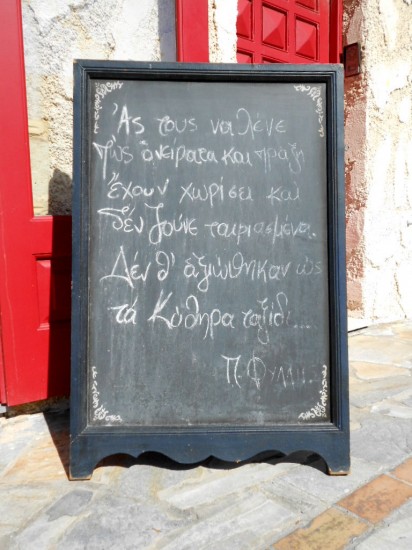 Ἄς τους να λένε
πὼς ὀνείρατα και πράξη
ἔχουν χωρίσει και
δὲν ζοῦνε ταιριασμένα.
Δὲν θ' ἀξιώθηκαν ὡς
τά Κύθηρα ταξίδι...
Π. Φύλλης